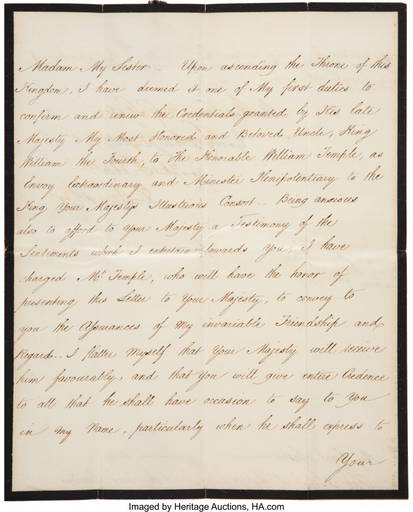 Madam My Sister Upon ascending the Throne of this
Kingdom, I have deemed it one of My first duties to
confirm and renew the Credentials granted by His late
Majesty My Most Honored and Beloved Uncle, King
William the Fourth, to The Honorable William Temple, as
Envoy Extraordinary and Minister Plenipotentiary to the
King Your Majesty's Illustrious Consort. Being anxious
also to afford to Your Majesty a Testimony of the
Sentiments which I entertain towards You, I have
charged Mr. Temple, who will have the honor of
presenting this Letter to Your Majesty, to convey to
you the Assurances of My invariable Friendship and
Regard. I flatter Myself that Your Majesty will receive
him favourably, and that You will give entire Credence
to all that he shall have occasion to say to You
in my Name, particularly when he shall express to
Your
Imaged by Heritage Auctions, HA.com